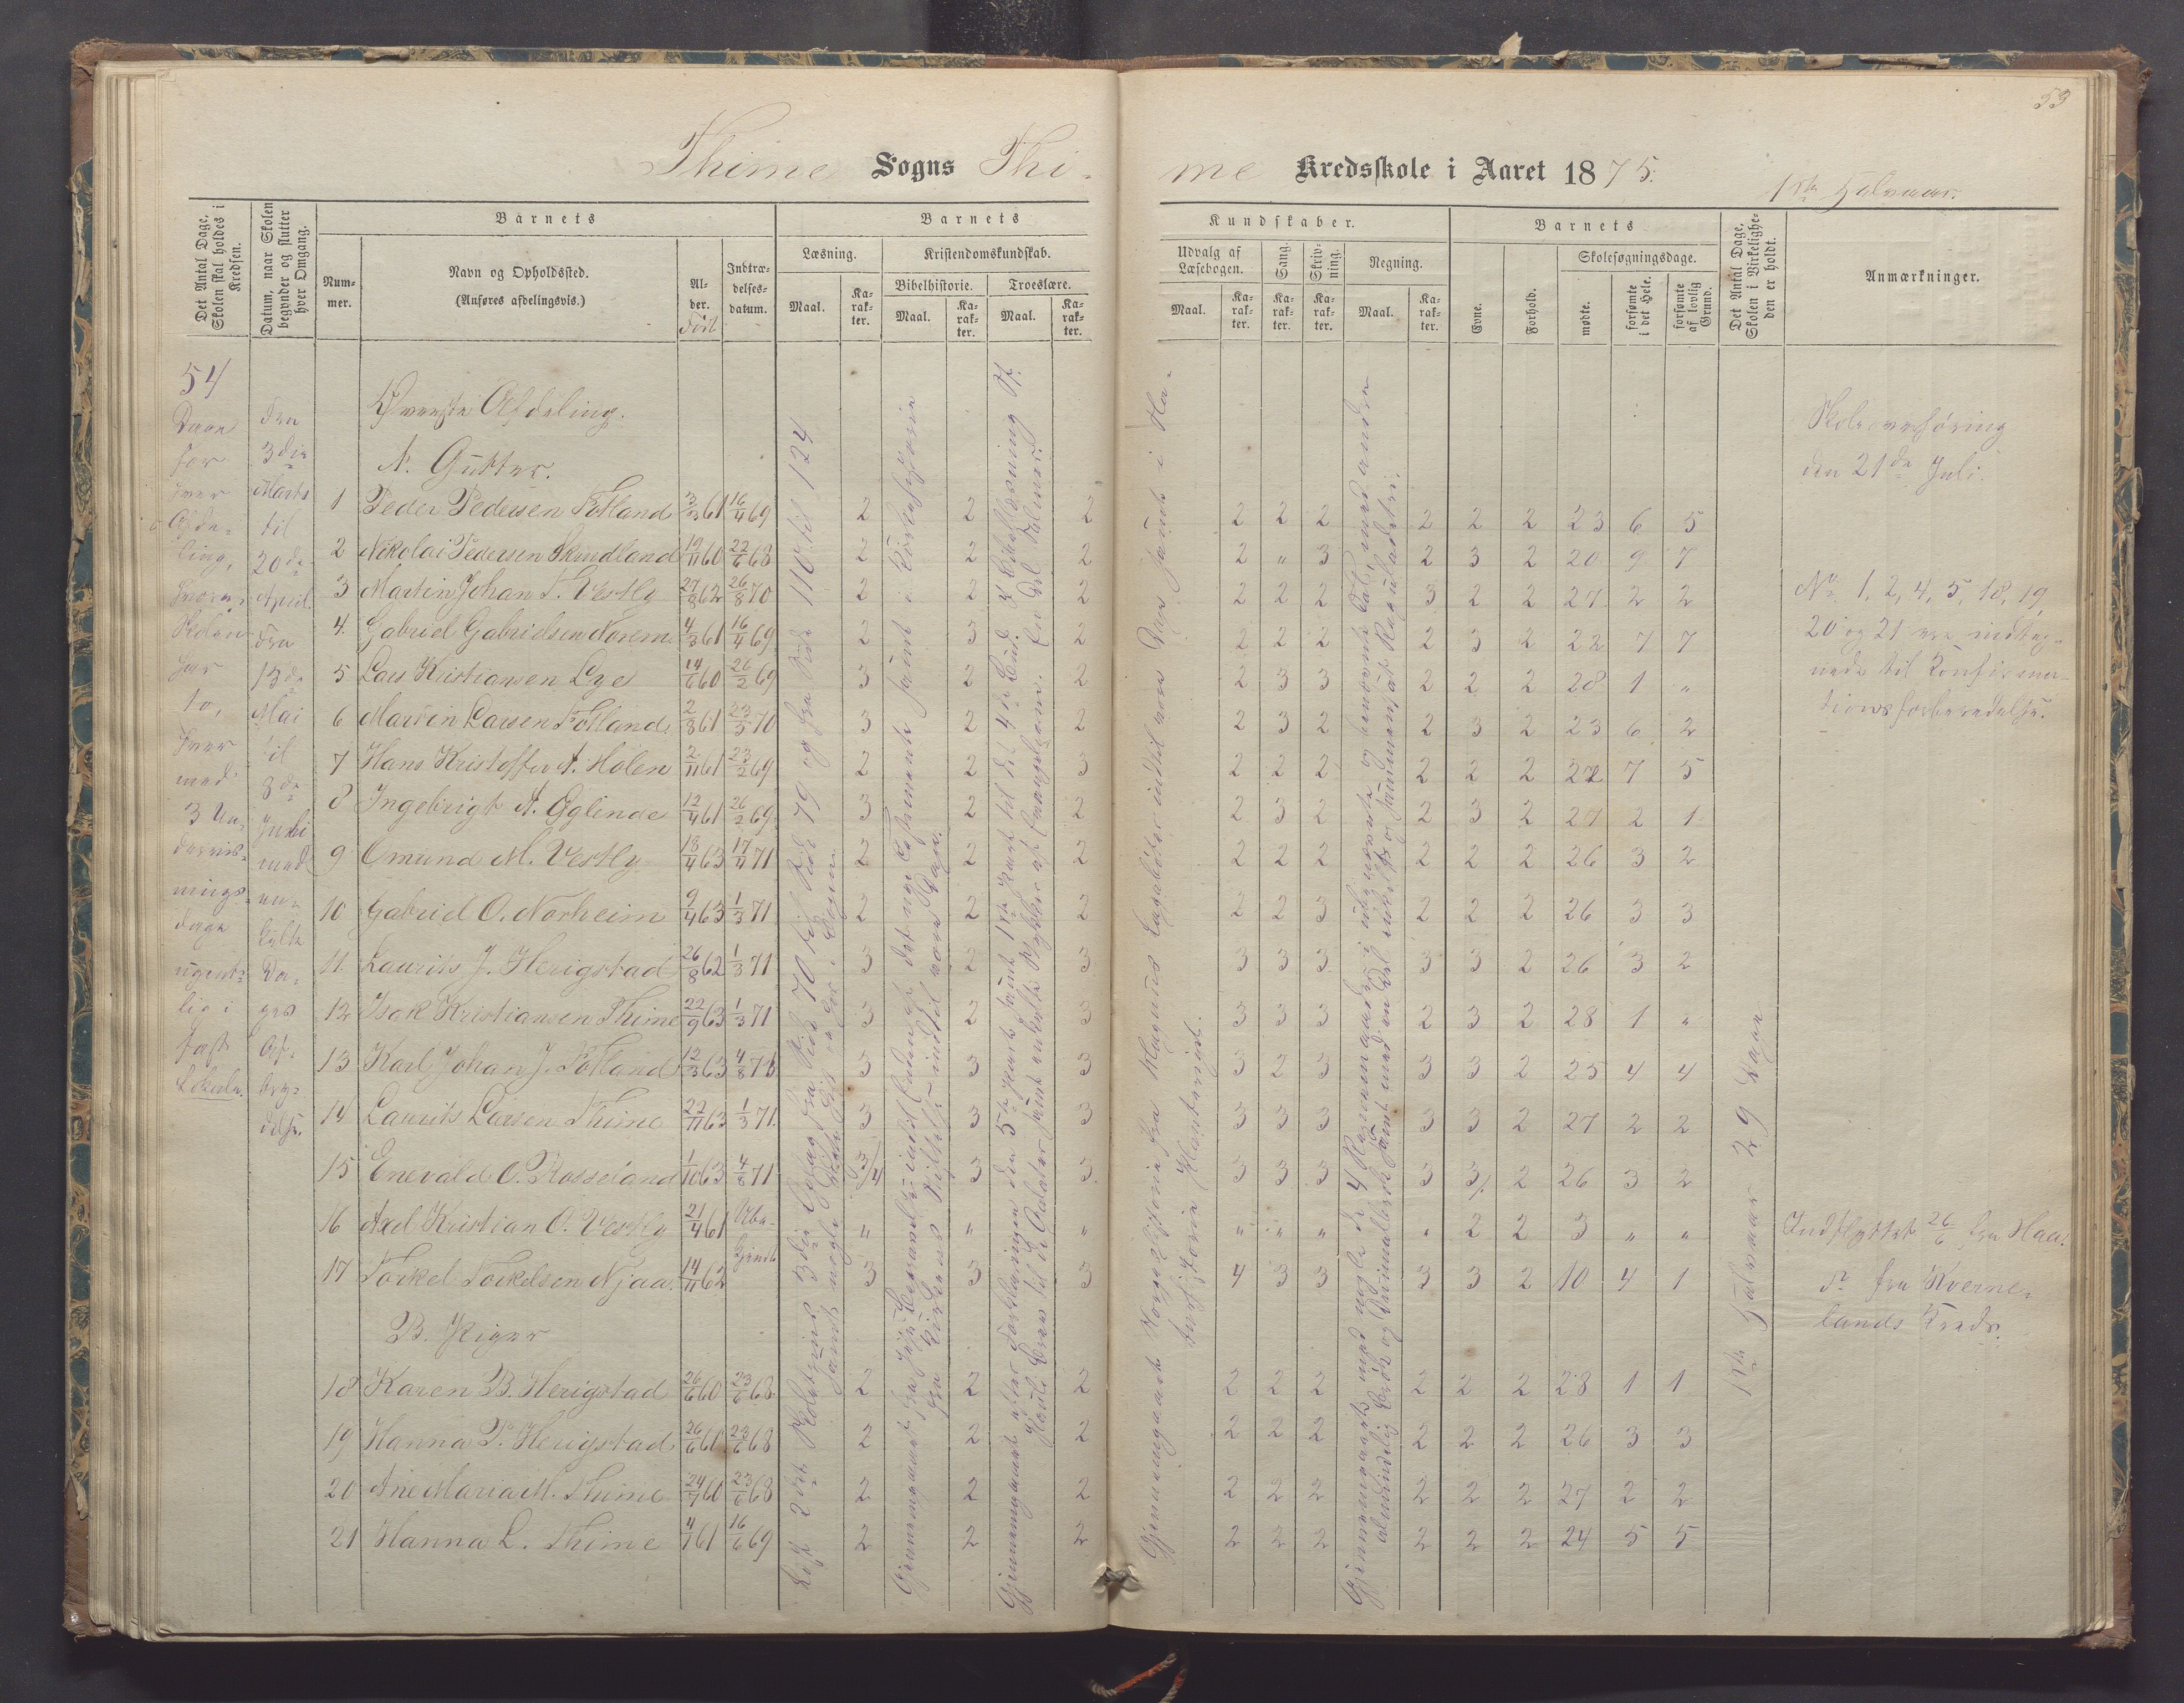 53
Thime Sogns Thime Kredsskole i Aaret 1875.
1ste Halvaar.
Det Antal Dage, Skolen skal holdes i Kredsen.
Datum, naar Skolen begynder og slutter hver Omgang.
Barnets
Nummer.
Navn og Opholdssted.
(Anføres afdelingsvis.)
Alder.
Født
Indtrædelsesdatum.
Barnets
Læsning.
Kristendomskundskab.
Bibelhistorie.
Troeslære.
Maal.
Karakter.
Maal.
Karakter.
Maal.
Karakter.
Kundskaber.
Udvalg af Læsebogen.
Sang.
Skrivning.
Regning.
Maal.
Karakter.
Karakter.
Karakter.
Maal.
Karakter.
Barnets
Evne.
Forhold.
Skolesøgningsdage.
mødte.
forsømte i det Hele.
forsømte af lovlig Grund.
Det Antal Dage, Skolen i Virkeligheden er holdt.
Anmærkninger.
54
Dage
for
hver
Afde-
ling,
hvoraf
Skolen
har
to,
hver
med
3 Un-
dervis-
nings-
dage
ugent-
lig i
fast
Lokale.
Fra
3die
Marts
til
20de
April.
Fra
13de
Mai
til
8de
Juli
med
en-
kelte
Da-
ges
Af-
bry-
delse.
Øverste Afdeling.
A. Gutter.
1 Peder Pedersen Fotland 3/3 61 16/4 69 2 2 2 2 2 2 2 2 2 23 6 5
2 Nikolai Pedersen Skrudland 19/11 60 22/6 68 2 2 2 2 " 3 2 3 2 20 9 7
3 Martin Johan T. Vestly 27/8 62 26/8 70 2 2 2 2 2 2 3 2 2 27 2 2
4. Gabriel Gabrielsen Norem 4/3 61 16/4 69 2 3 2 2 2 2 2 3 2 22 7 7
5 Lars Kristiansen Lye 14/6 60 26/2 69 3 2 2 2 3 3 2 2 2 28 1 "
6 Martin Larsen Fotland 2/8 61 23/5 70 3 2 2 2 3 2 2 3 2 23 6 2
7 Hans Kristoffer A. Holen 2/11 61 23/2 69 2 2 3 2 2 2 2 2 2 22 7 5
8 Ingebrigt A. Eglinde 12/4 61 26/2 69 3 2 2 2 3 2 2 3 2 27 2 1
9 Omund M. Vestly 18/4 63 17/4 71 2 2 2 2 2 2 2 2 2 26 3 2
10 Gabriel O. Norheim 9/4 63 1/3 71 2 2 2 2 2 3 2 2 2 26 3 3
11. Laurits J. Herigstad 26/8 62 1/3 71 3 2 3 3 3 3 3 3 2 26 3 2
12 Isak Kristiansen Thime 22/9 63 1/3 71 3 2 3 3 3 3 2 3 2 28 1 "
13 Karl Johan J. Fotland 12/3 63 4/8 71 3 3 3 3 2 3 3 3 2 25 4 4
14 Laurits Larsen Thime 22/11 63 1/3 71. 3 3 3 3 3 3 3 3 2 27 2 2
15 Enevald O. Rosseland 1/10 63 4/8 71 3/4 3 3 3 3 3 3 3 2 26 3 2
16 Axel Kristian O. Vestly 21/4 61 Ube- " " " " " " " 2 2 3 " " Indflyttet 26/6 fra Haa.
17 Torkel Torkelsen Njaa 14/11 62 kjendt 3 3 3 4 3 3 3 3 2 10 4 1 do fra Kverne-
lands Kreds.
B. Piger
18 Karen B. Herigstad 26/6 60 23/6 68 2 2 2 2 2 2 2 2 2 28 1 1
19 Hanna P. Herigstad 26/6 61 23/6 68 2 2 2 2 2 2 2 2 2 26 3 3
20 Ane Maria M. Thime 24/7 60 23/6 68 2 2 2 2 2 2 2 2 2 27 2 2
21 Hanna L. Thime 4/1 61 16/6 69 2 2 2 2 2 2 2 2 2 24 5 5
Læst 2det Skoletrins 3die Opslag fra Side 70 til Side 79 og fra Side 110 til 124
Gjennemgaaet fra Jesu indtil Enden af det nye Testamente samt Kirkehistorie
fra Kirkens Stiftelse indtil vore Dage.
Gjennemgaaet efter Forklaringen den 5te Part samt 1ste Part til det 4de Bud.
Gjennemgaaet Norgeshistorie fra Magnus Lagabøter indtil vore Dage samt i
1ste Halvaar 29 Dage
Skoleoverhøring
den 21de Juli.
No 1, 2, 4, 5, 18, 19,
20 og 21 ere indteg-
nede til Konfirma-
tionsforberedelse.